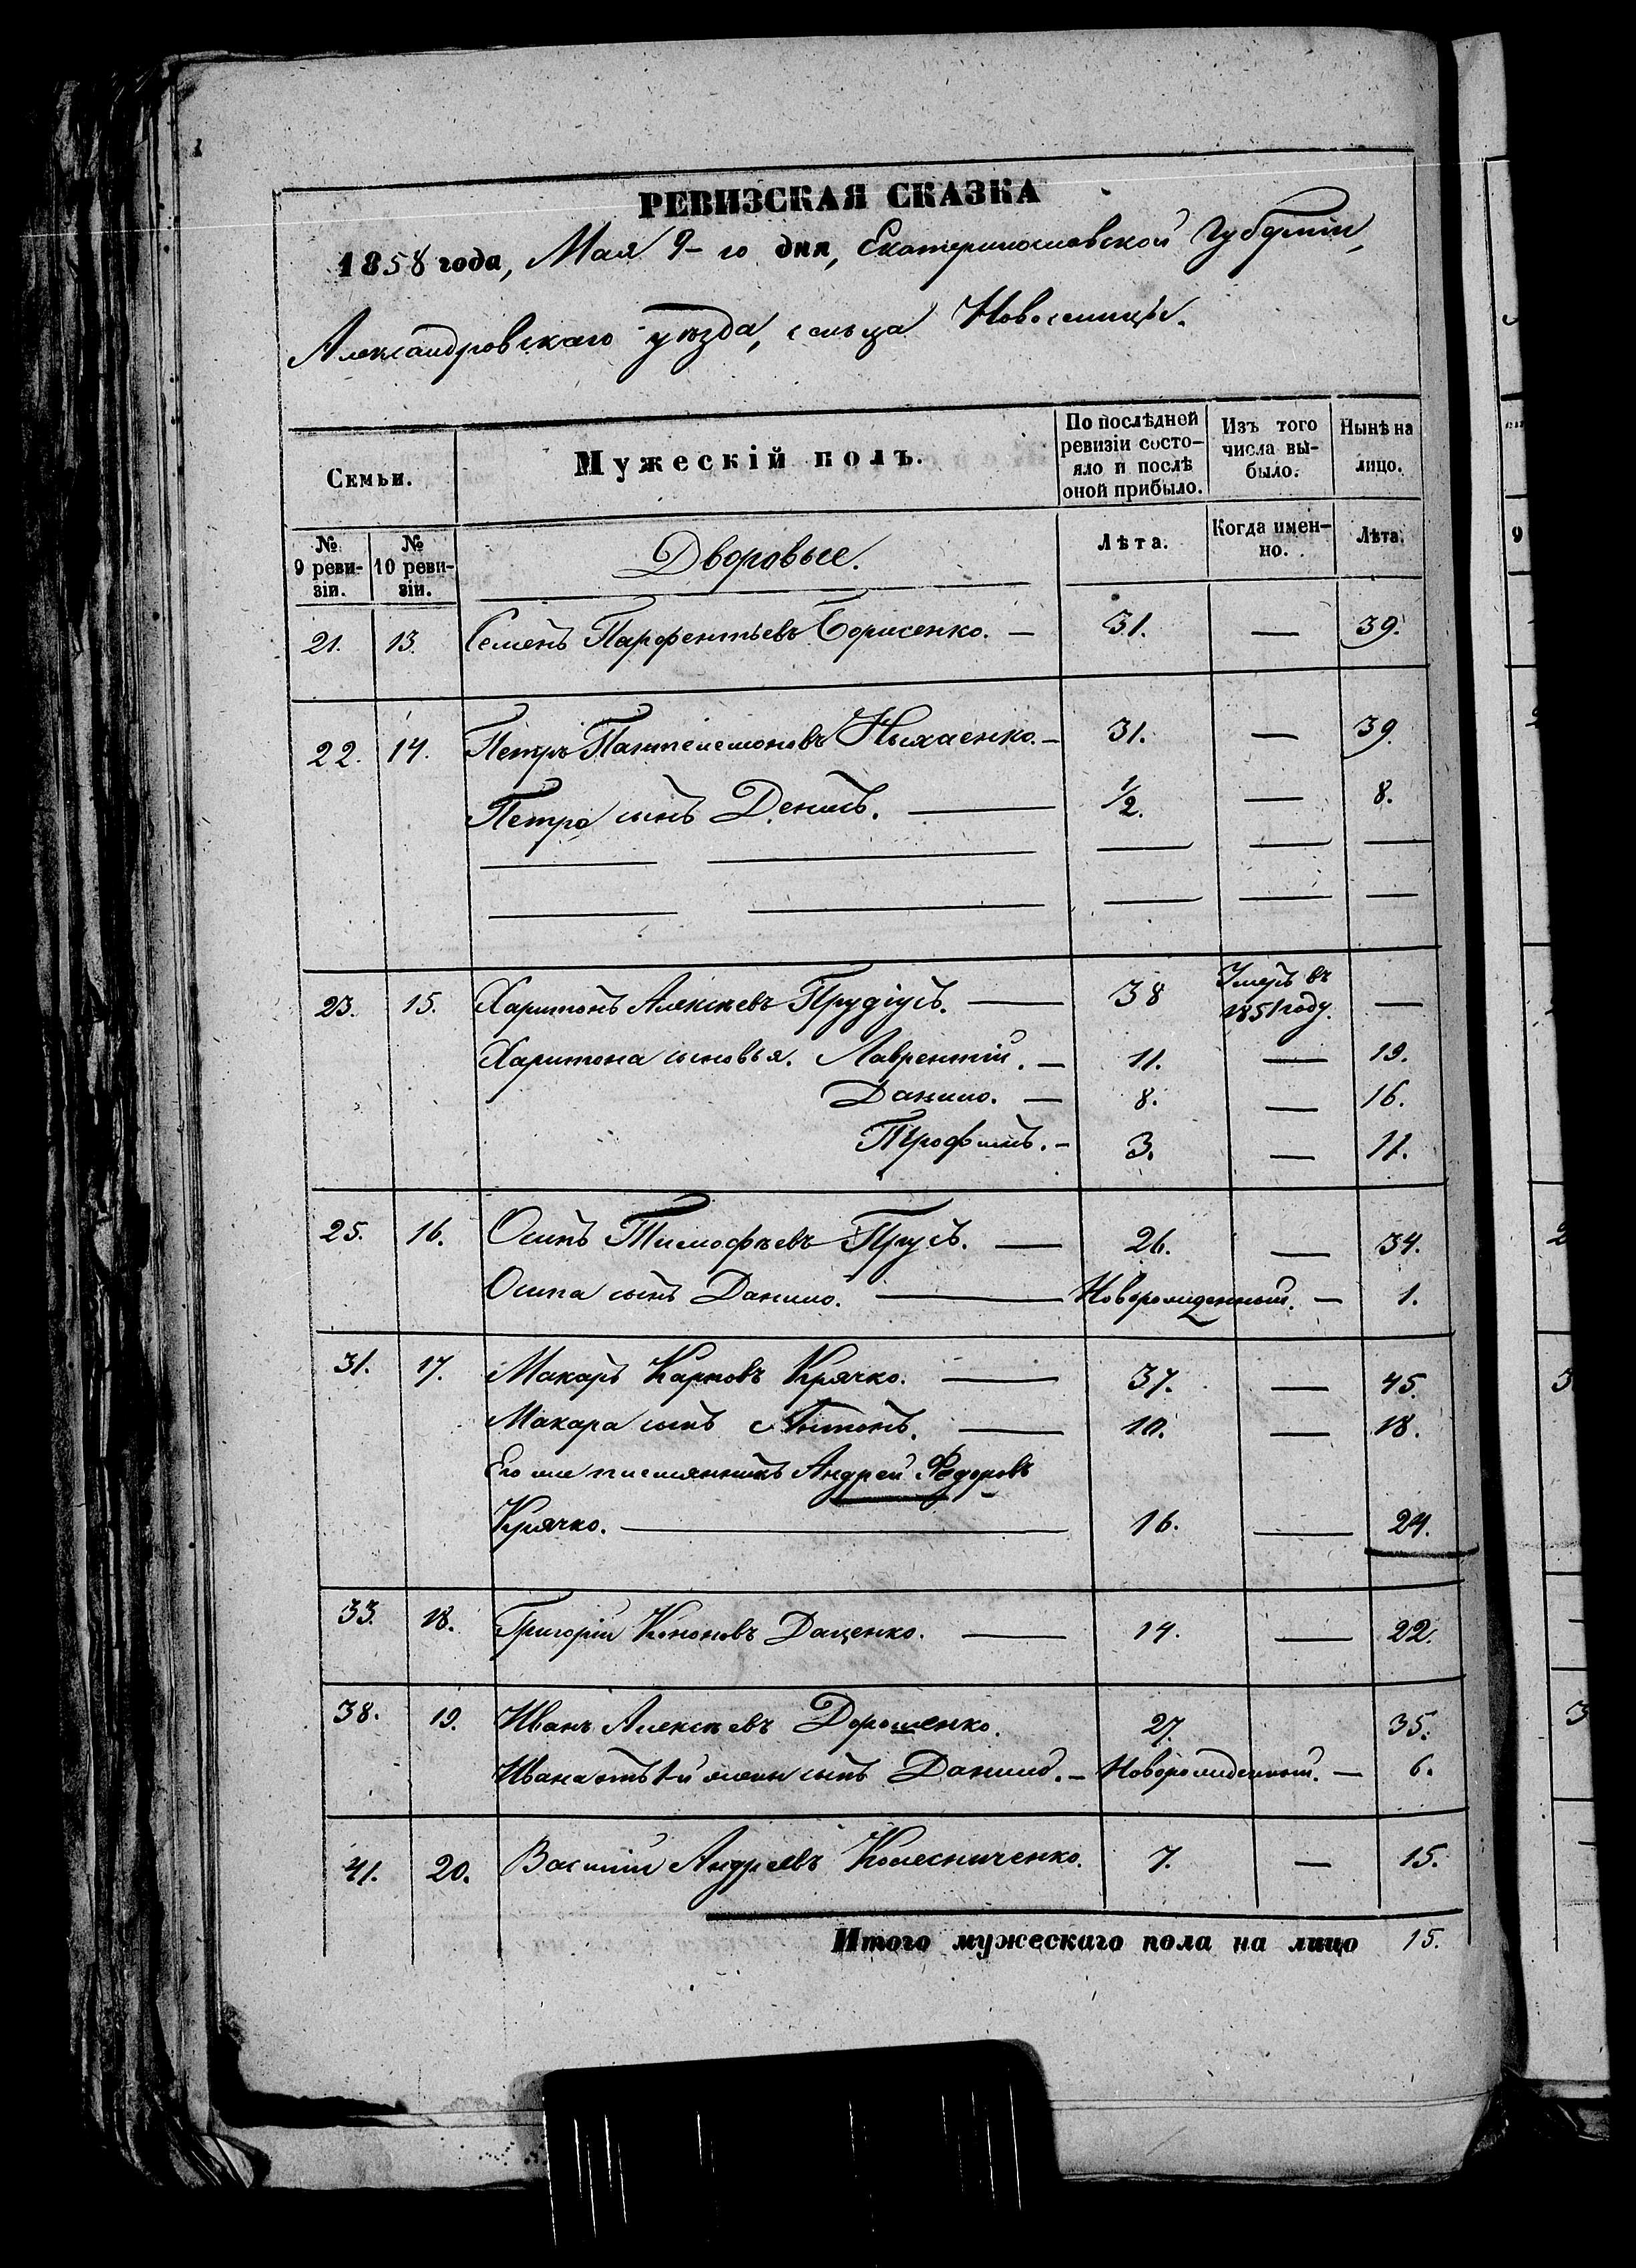 РЕВИЗСКАЯ СКАЗКА
1858 года, Мая 9-го дня, Екатеринославской Губерніи,
Александровскаго уѣзда, сельца Новоселицы.
Семьи.
Мужескій полъ.
По послѣдней ревизіи состо-
яло и послѣ оной прибыло.
Изъ того числа вы-
было.
Нынѣ на лицо.
№ 9 реви-
зіи.
№ 10 реви-
зіи.
Дворовые.
Лѣта.
Когда имен-
но.
Лѣта.
21. 13. Семенъ Парфентьевъ Борисенко. — 31. — 39.
22. 14. Петръ Пантелемоновъ — 31. — 39.
Петра сынъ Денисъ. — 1/2. — 8.
23. 15. Харитонъ Алексѣевъ Прудіусъ. — 38 Умеръ въ 1851 году. —
Харитона сыновья. Лаврентій. — 11. — 19.
Данило. — 8. — 16.
Трофимъ. — 3. — 11.
25. 16. Осипъ Тимофѣевъ Прусъ. — 26. — 34.
Осипа сынъ Данило. — Новорожденный. — 1.
31. 17. Макаръ Карповъ Крячко. — 37. — 45.
Макара сынъ Антонъ. — 10. — 18.
Его же племянникъ Андрей Федоровъ
Крячко. — 16. — 24.
33. 18. Григорій Кононовъ Даценко. — 14. — 22.
38. 19. Иванъ Алексѣевъ Дорошенко. 27. 35.
Ивана отъ 1-й жены сынъ Данило. — Новорожденный. — 6.
41. 20. Василій Андреевъ Колесниченко. 7. — 15.
Итого мужескаго пола на лицо 15.